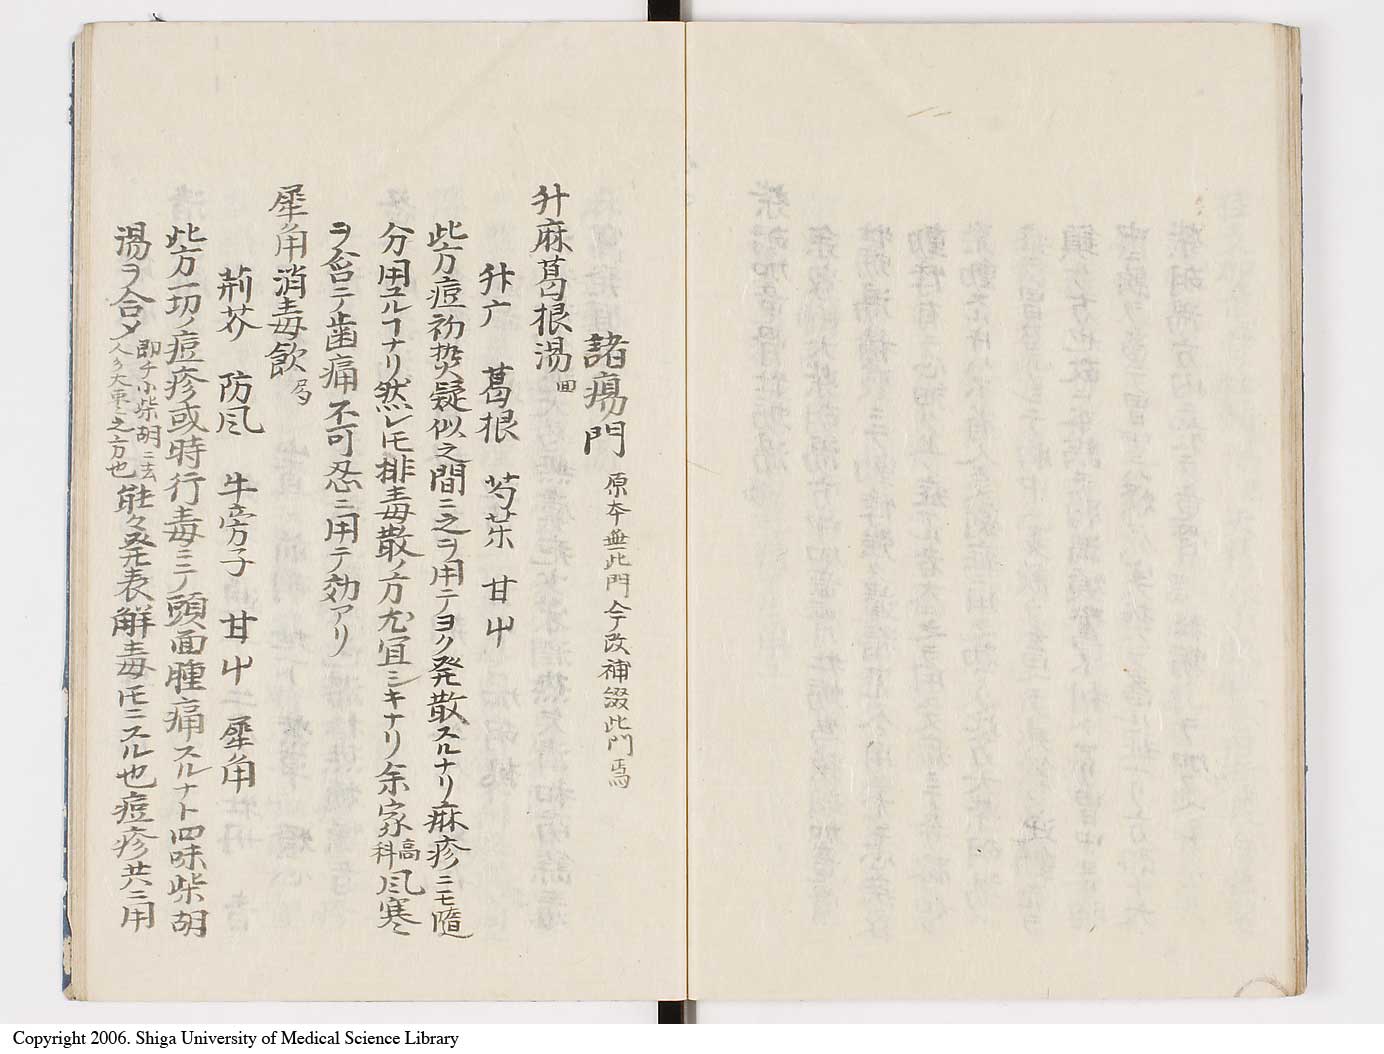 諸瘍門 原本無此門今改補綴此門焉
升麻葛根湯 回
升广 葛根 芍薬 甘屮
此方痘初熱疑似之間ニ之ヲ用テヨク発散スルナリ麻疹ニモ隨
分用ユルコナリ然レ𪜈排毒散ノ方尤宜シキナリ余家高科風寒ニ
ヲ合ニテ歯痛不可忍ニ用テ効アリ
犀角消毒飲 局
荊芥 防風 牛旁子 甘屮 犀角
此方一切ノ痘疹或時行毒ニテ頭面腫痛スルナト四味柴胡
湯ヲ合メ 即チ小柴胡ニ去人々大東之方也 能々発表解毒𪜈ニスル也痘疹共ニ用
Copyright 2006. Shiga University of Medical Science Library